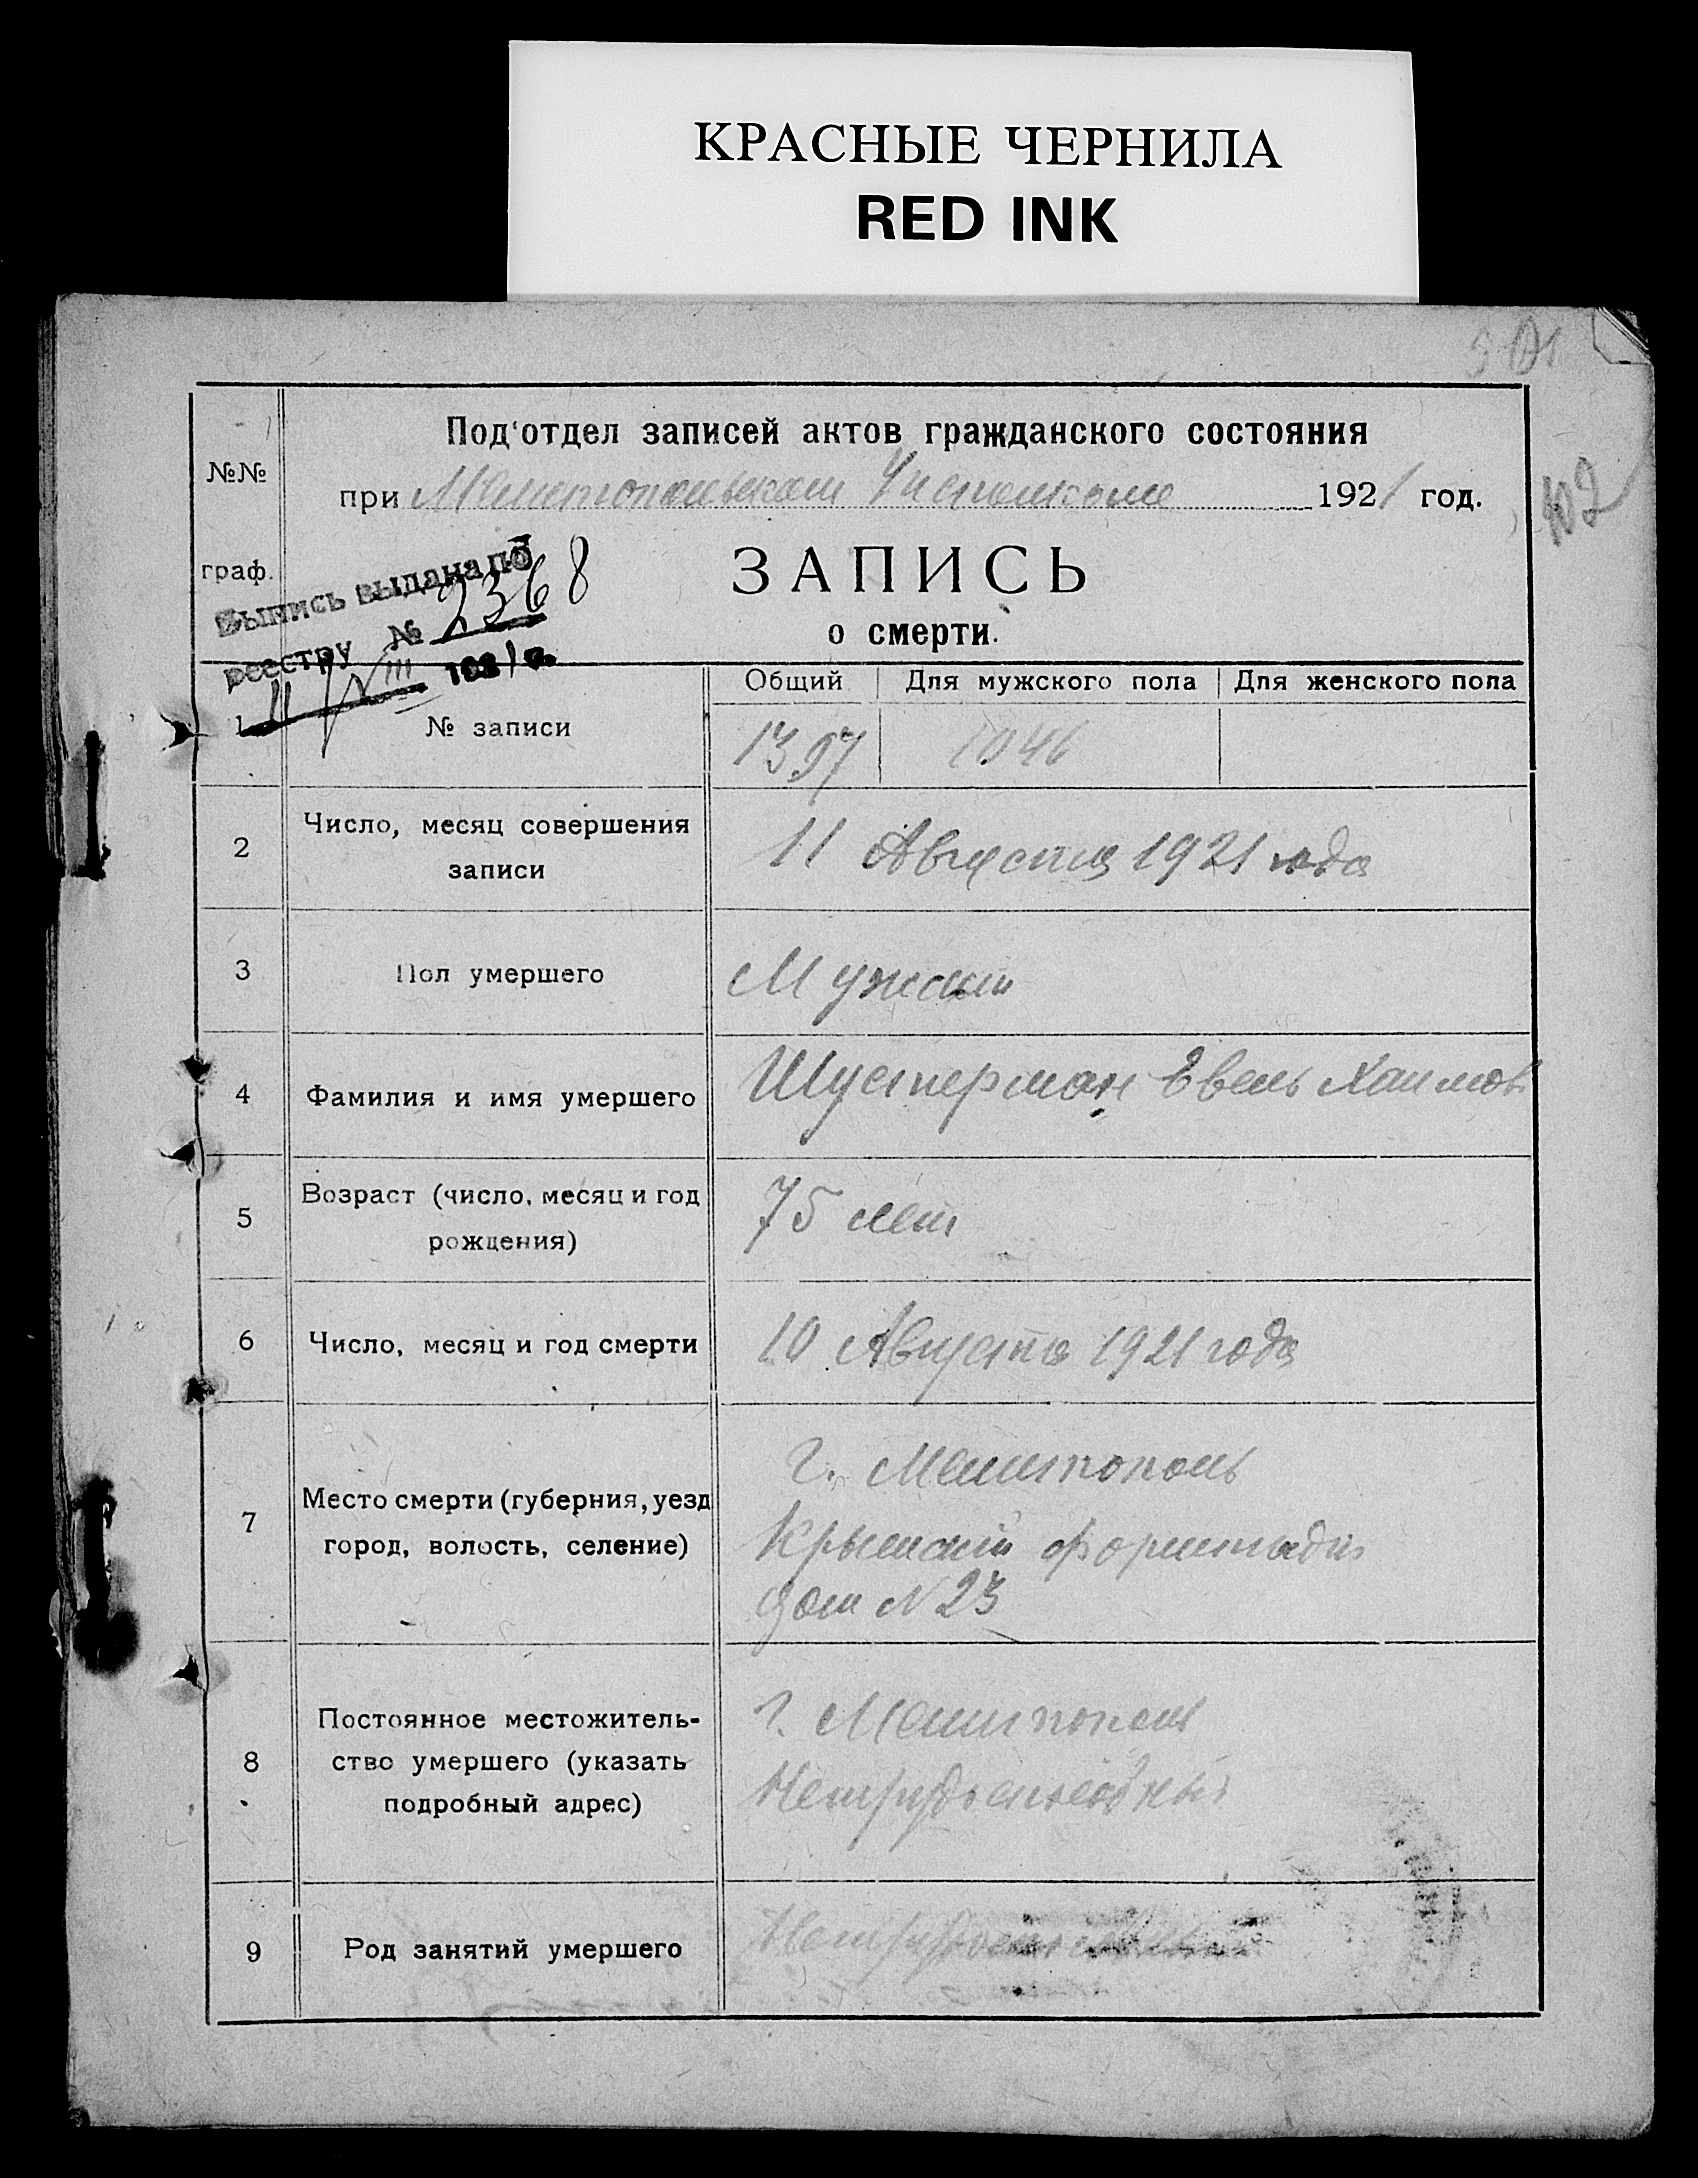 КРАСНЫЕ ЧЕРНИЛА
RED INK
402
Под'отдел записей актов гражданского состояния
№№
при Мелитопольском Исполкоме 1921 год.
граф.
ЗАПИСЬ
о смерти.
Выпись выдана по
реестру № 2368
11/VIII 1921 г.
Общий Для мужского пола Для женского пола
1 № записи 1397 1046
2 Число, месяц совершения
записи
11 Августа 1921 года
3 Пол умершего Мужской
4 Фамилия и имя умершего Шустерман Евель Хаимов
5 Возраст (число, месяц и год
рождения)
75 лет
6 Число, месяц и год смерти 10 Августа 1921 года
7 Место смерти (губерния, уезд
город, волость, селение)
г. Мелитополь
Крымский форштадт
дом N 23
8 Постоянное местожитель-
ство умершего (указать
подробный адрес)
г. Мелитополь
Нетрудоспособный
9 Род занятий умершего Нетрудоспособный